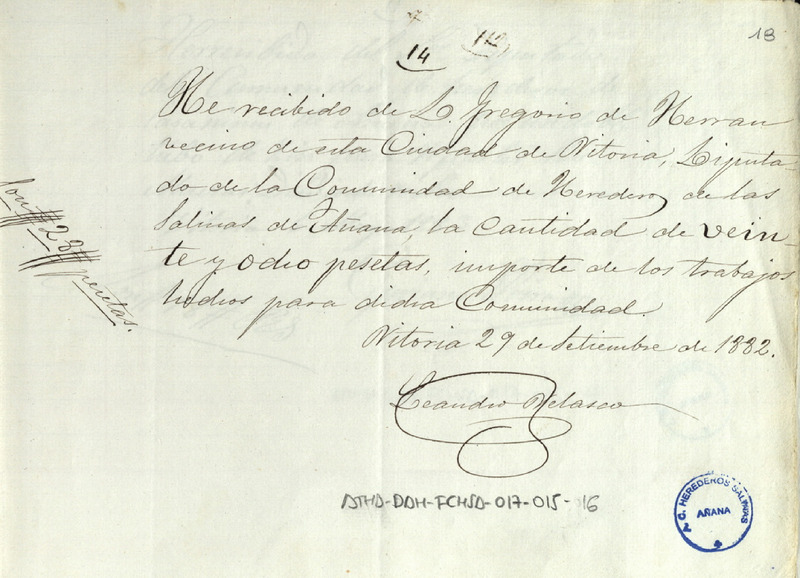 18
14 112
He recibido de D. Gregorio de Herran
vecino de esta Ciudad de Vitoria, Diputa-
do de la Comunidad de Herederos de las
Salinas de Añana, la cantidad de vein-
te y ocho pesetas, importe de los trabajos
hechos para dicha Comunidad.
Vitoria 29 de Setiembre de 1882.
Leandro Velasco
Son 28 pesetas.
ATHA-DAH-FCHSA-017-015-16
C. HEREDEROS SALINAS
AÑANA